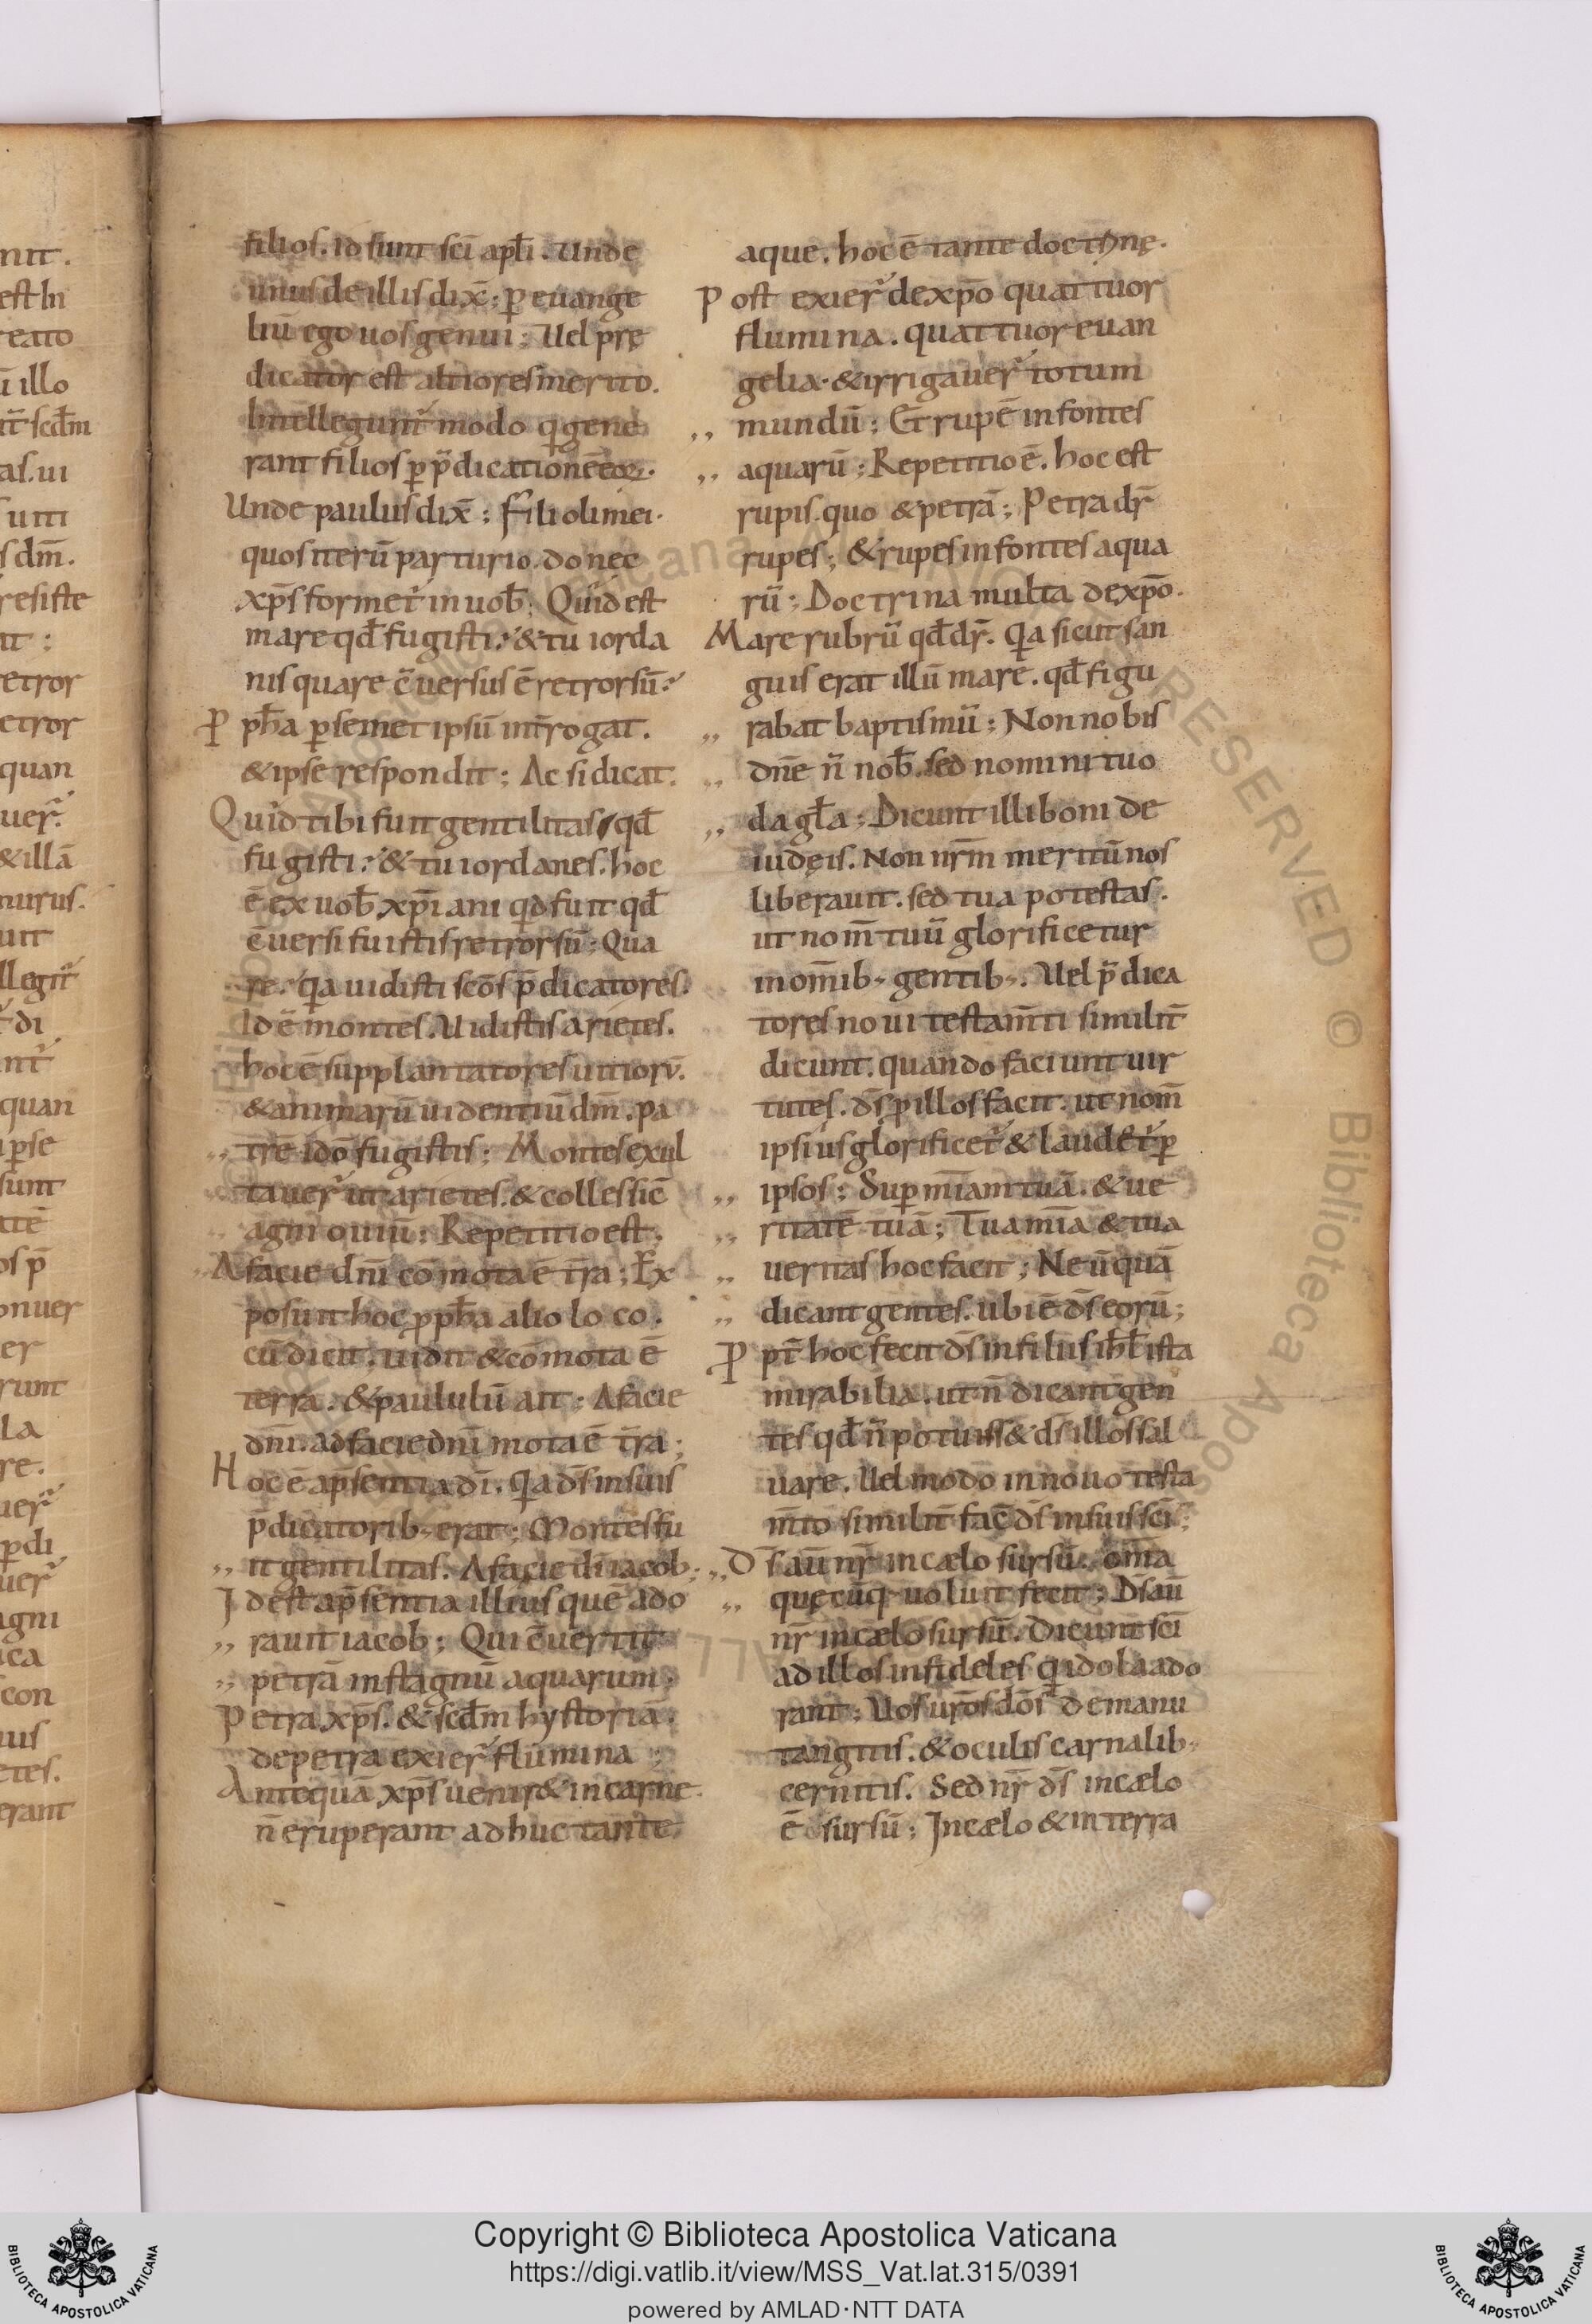 filios. id sunt sc̄i apłi. Unde
unus de illis dix̄; ꝑ euange
liū ego uos genui; Uel prę
dicator est altiores merito.
Intelleguntᷣ modo qui gene
rant filios ꝑ p̄dicationē eoꝝ.
Unde paulus dix̄; Filioli mei.
quos iterū parturio. donec
xp̄s formetᷣ in uob̄; Quid est
mare qđ fugisti? & tu iorda
nis quare c̄uersus ē retrorsū?
P ph̄a ꝑ semet ipsū int̄rogat.
& ipse respondit; Ac si dicat.
Quid tibi fuit gentilitas qđ
fugisti? & tu iordanes. hoc
ē ex uob̄ xp̄iani qid fuit qđ
c̄uersi fuistis retrorsū; Qua
re? qia uidisti sc̄os p̄dicatores.
Id ē montes. Uidistis arietes.
hoc ē supplantatores uitiorū.
& animarū uidentiū dm̄. pa
„ trē ido fugistis; Montes exul
tauerᷣ ut arietes. & colles sic̄
agni ouiū; Repetitio est.
A facie dn̄i cōmota ē t̄ra; Ex
posuit hoc ꝓph̄a alio loco.
cū dicit. uidit & cōmota ē
terra. & paululū ait; A facie
dn̄i. ad facie dn̄i mota ē t̄ra;
Hoc ē ap̄sentia dī. qia d̄s in suis
p̄dicatorib; erat; Montes fu
„ it gentilitas. A facie dī iacob;
Id est ap̄sentia illius quē ado
„ rauit iacob; Qui c̄uertit
„ petrā in stagnū aquarum;
Petra xp̄s. & scđm hystoriā.
de petra exierᷣ flumina;
Antequā xp̄s uenir& in carne.
n̄ eruperant adhuc tante
aque. hoc ē tante doctrinę.
Post exierᷣ de xp̄o quattuor
flumina. quattuor euan
gelia. & irrigauerᷣ totum
„ mundū; Et rupē in fontes
„ aquarū; Repetitio ē. hoc est
rupis. quo & petrā; Petra dr̄
rupes; & rupes in fontes aqua
rū; Doctrina multa de xp̄o.
Mare rubrū qđ dr̄. qia sicut san
guis erat illū mare. qđ figu
„ rabat baptismū; Non nobis
„ dn̄e n̄ nob̄. sed nomini tuo
„ da gła; Dicunt illi boni de
iudęis. Non nr̄m meritū nos
liberauit. sed tua potestas.
ut nom̄ tuū glorificetur
in om̄ib; gentib;. Uel p̄dica
tores noui testam̄ti similit̄
dicunt. quando faciunt uir
tutes. d̄s ꝑ illos facit. ut nom̄
ipsius glorificetᷣ & laud&ᷣ ꝑ
„ ipsos; Suꝑ mīam tuā. & ue
„ ritatē tuā; Tua mīa & tua
„ ueritas hoc facit; Ne ūquā
„ dicant gentes. ubi ē d̄s eorū;
P pt̄ hoc fecit d̄s in filiis isrł ista
mirabilia. ut n̄ dicant gen
tes qđ n̄ potuiss& d̄s illos sal
uare. Uel modo in nouo testa
m̄to similit̄ fac̄ d̄s in suis sc̄i;
„ D̄s aū nr̄ in cælo sursū. om̄a
„ quęcūq; uoluit fecit; D̄s aū
nr̄ in cælo sursū. Dicunt sc̄i
ad illos infideles qi idola ado
rant; Uos ur̄os dō̄s de manu
tangitis. & oculis carnalib;
cernitis. Sed nr̄ d̄s in cælo
ē sursū; In cælo & in terra
Copyright © Biblioteca Apostolica Vaticana
https://digi.vatlib.it/view/MSS_Vat.lat.315/0391
powered by AMLAD·NTT DATA
BIBLIOTECA APOSTOLICA VATICANA
BIBLIOTECA APOSTOLICA VATICANA